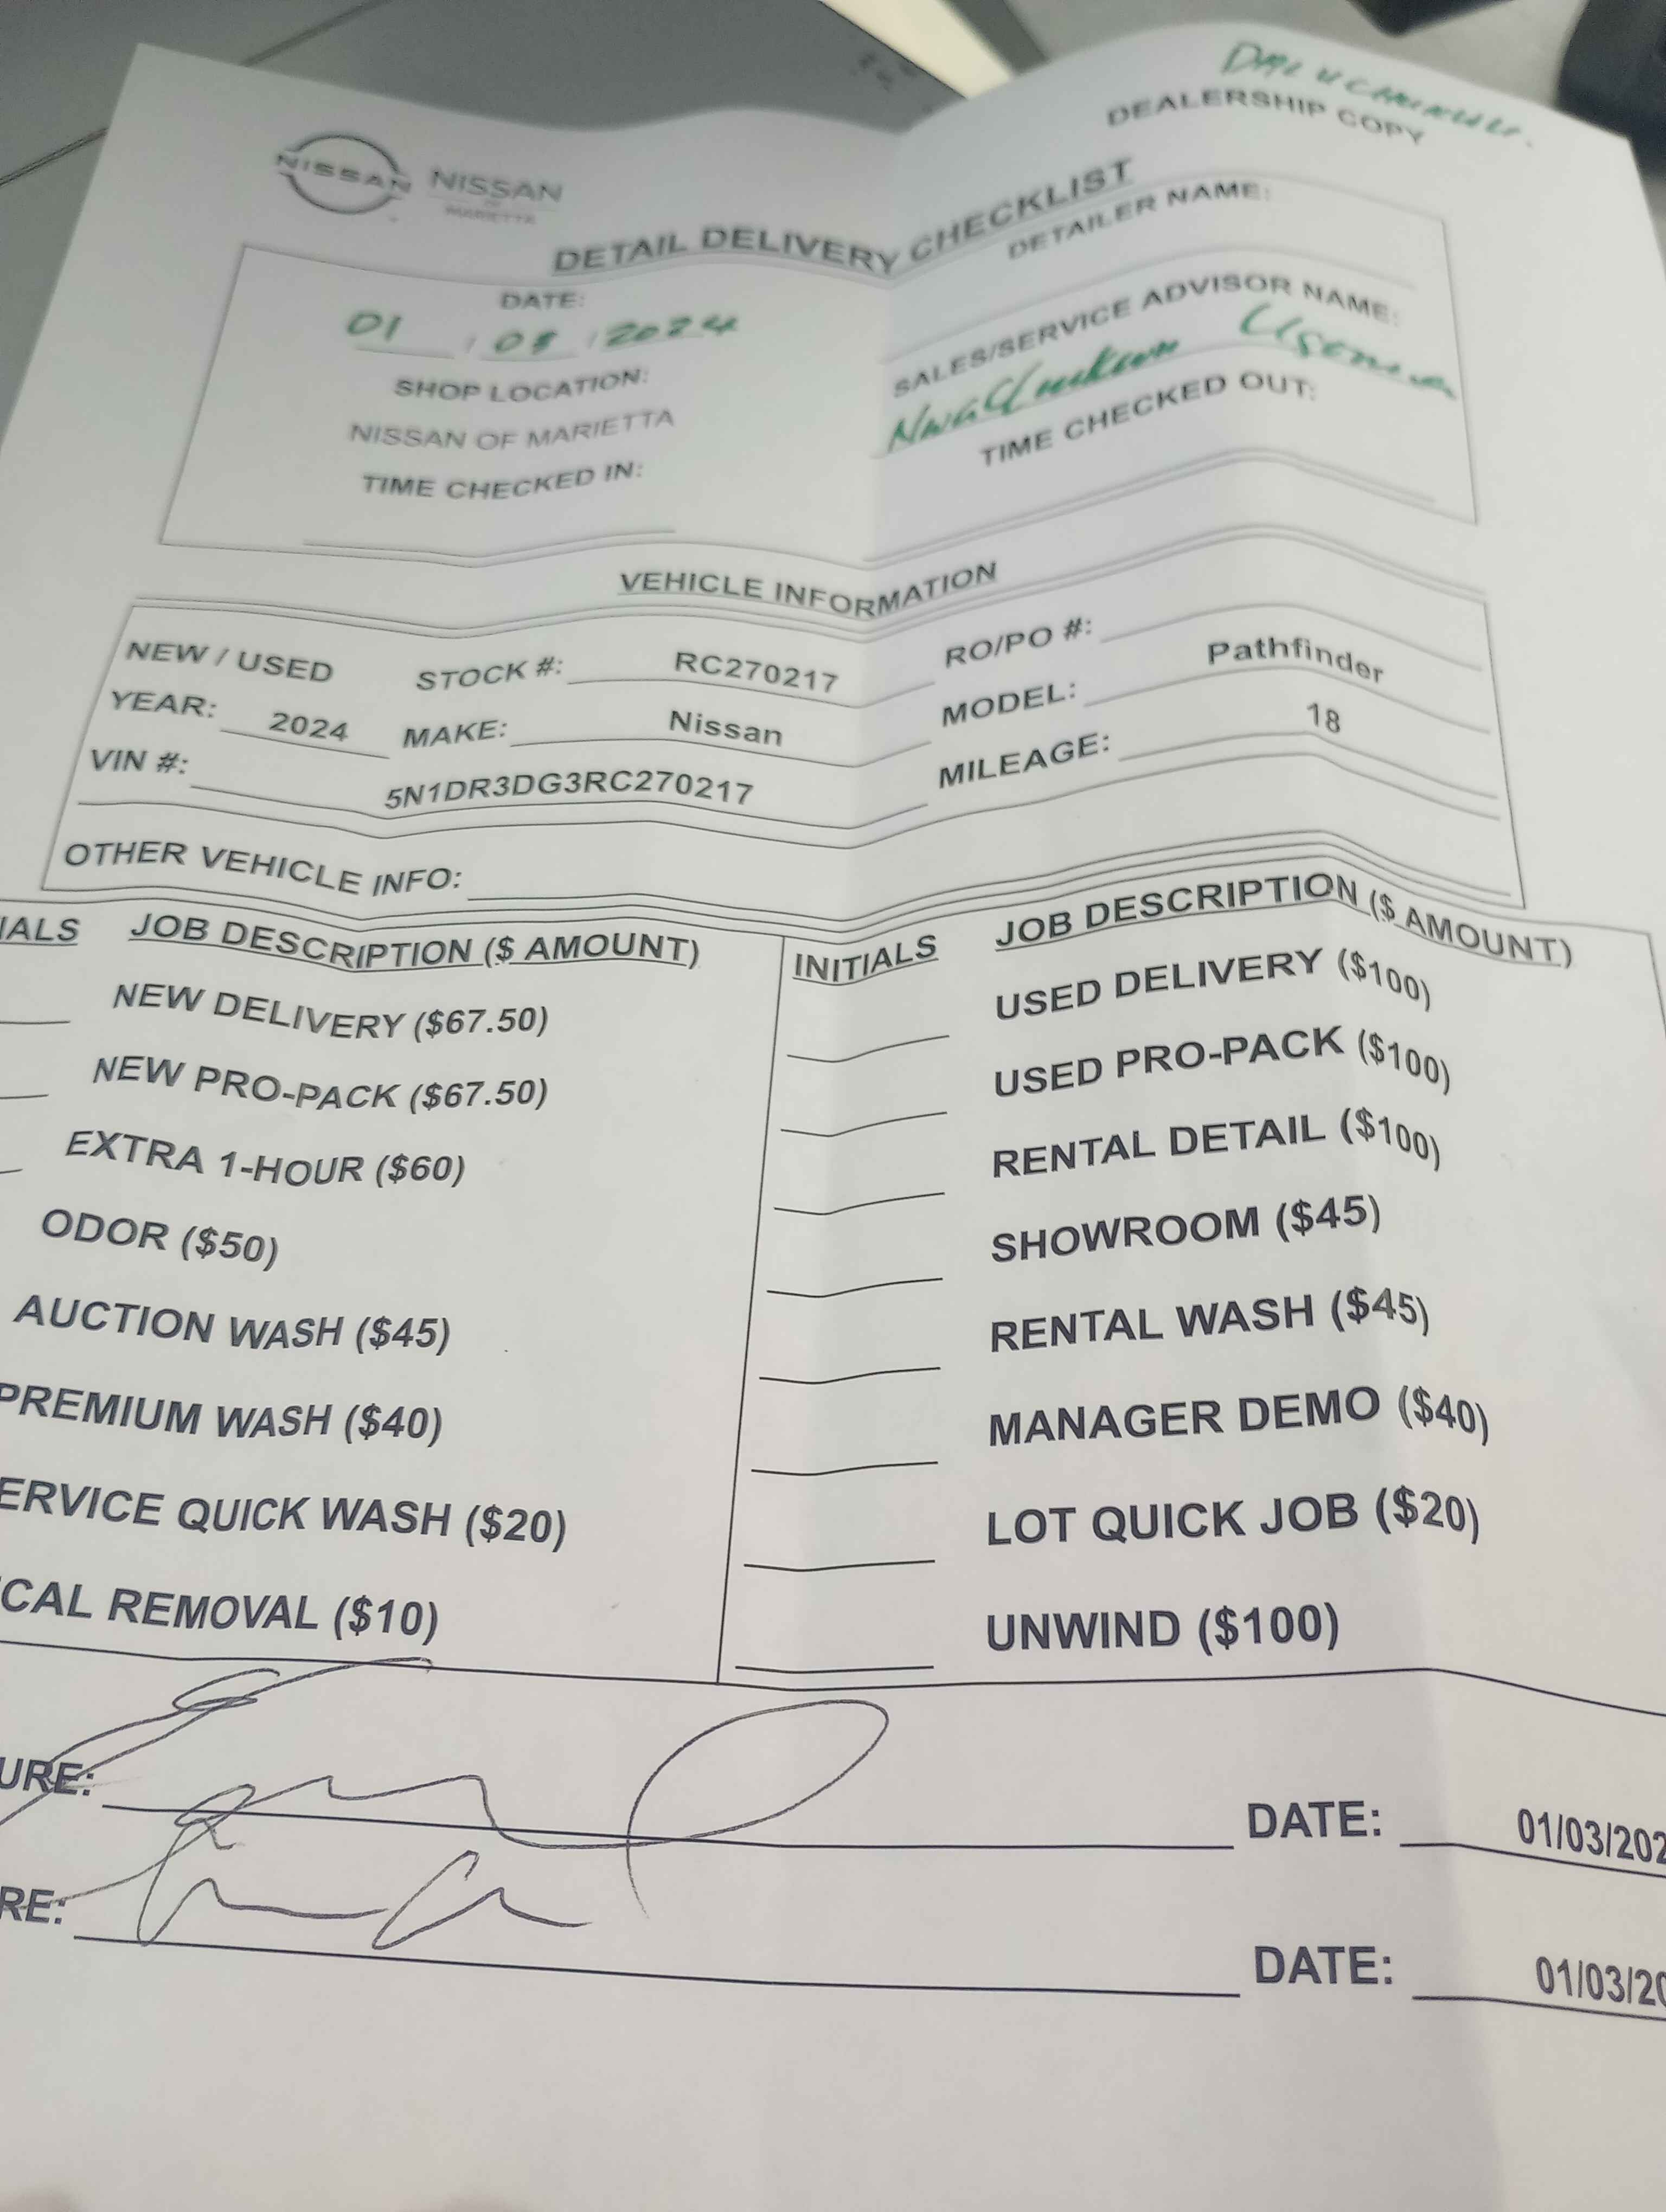 DEALERSHIP COPY
NISSAN NISSAN
OF
MARIETTA
DETAIL DELIVERY CHECKLIST
DATE: DETAILER NAME:
01 / 03 / 2024
SHOP LOCATION: SALES/SERVICE ADVISOR NAME:
NISSAN OF MARIETTA
TIME CHECKED IN: TIME CHECKED OUT:
VEHICLE INFORMATION
NEW / USED STOCK #: RC270217 RO/PO #:
YEAR: 2024 MAKE: Nissan MODEL: Pathfinder
VIN #: 5N1DR3DG3RC270217 MILEAGE: 18
OTHER VEHICLE INFO:
IALS JOB DESCRIPTION ($ AMOUNT) INITIALS JOB DESCRIPTION ($ AMOUNT)
NEW DELIVERY ($67.50) USED DELIVERY ($100)
NEW PRO-PACK ($67.50) USED PRO-PACK ($100)
EXTRA 1-HOUR ($60) RENTAL DETAIL ($100)
ODOR ($50) SHOWROOM ($45)
AUCTION WASH ($45) RENTAL WASH ($45)
PREMIUM WASH ($40) MANAGER DEMO ($40)
ERVICE QUICK WASH ($20) LOT QUICK JOB ($20)
CAL REMOVAL ($10) UNWIND ($100)
URE: DATE: 01/03/202
RE: DATE: 01/03/20